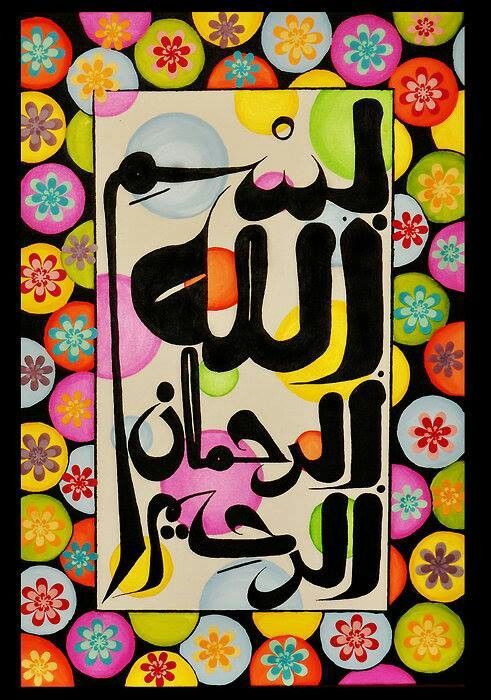 بسم
الله
الرحمان
الرحيم